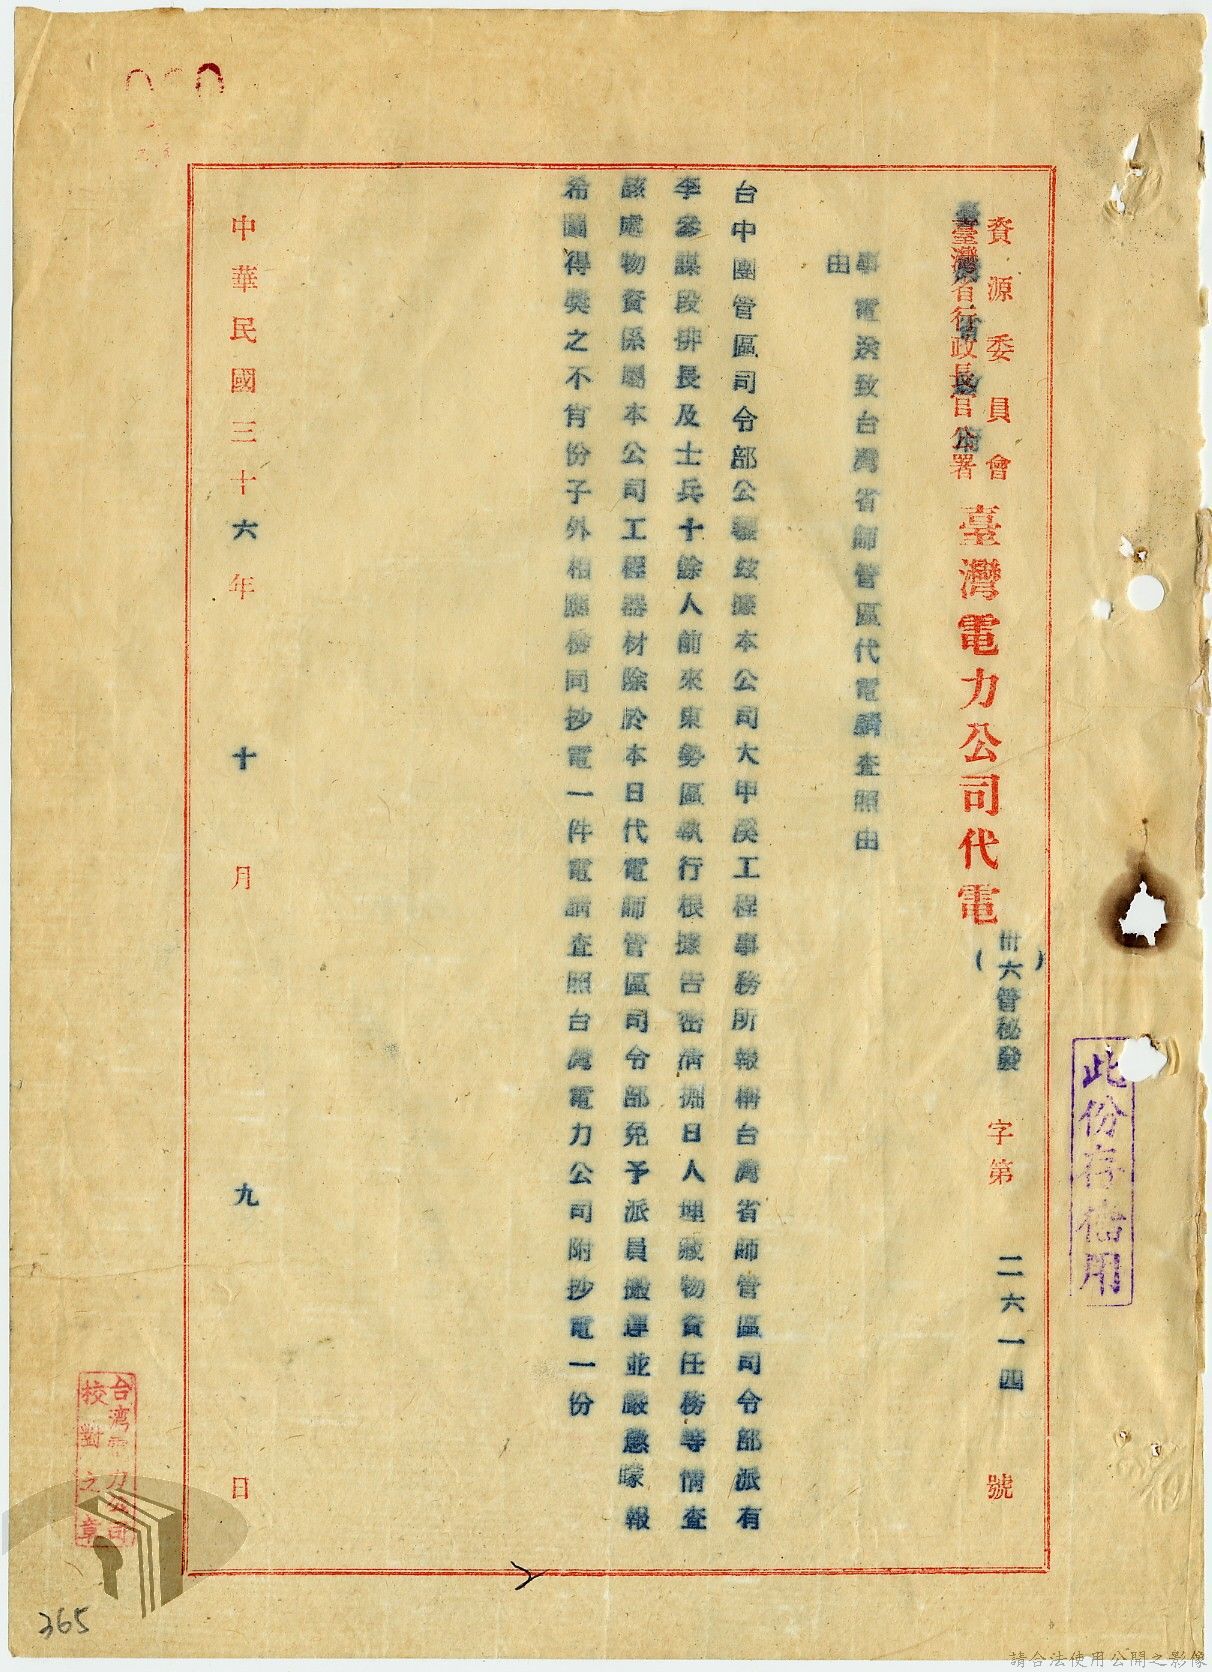 資源委員會
臺灣省行政長官公署
臺灣省政府
臺灣電力公司代電
(卅六管秘發)字第二六一四號
事由 電送致台灣省師管區代電請查照由
台中團管區司令部公鑒茲據本公司大甲溪工程事務所報稱台灣省師管區司令部派有
李參謀段排長及士兵十餘人前來東勢區執行根據告密情掘日人埋藏物資任務等情查
該處物資係屬本公司工程器材除於本日代電師管區司令部免予派員搬運並嚴懲矇報
希圖得獎之不肖份子外相應檢同抄電一件電請查照台灣電力公司附抄電一份
中華民國三十六年十月九日
此份存備用
台灣電力公司
校對之章
365
請合法使用公開之影像